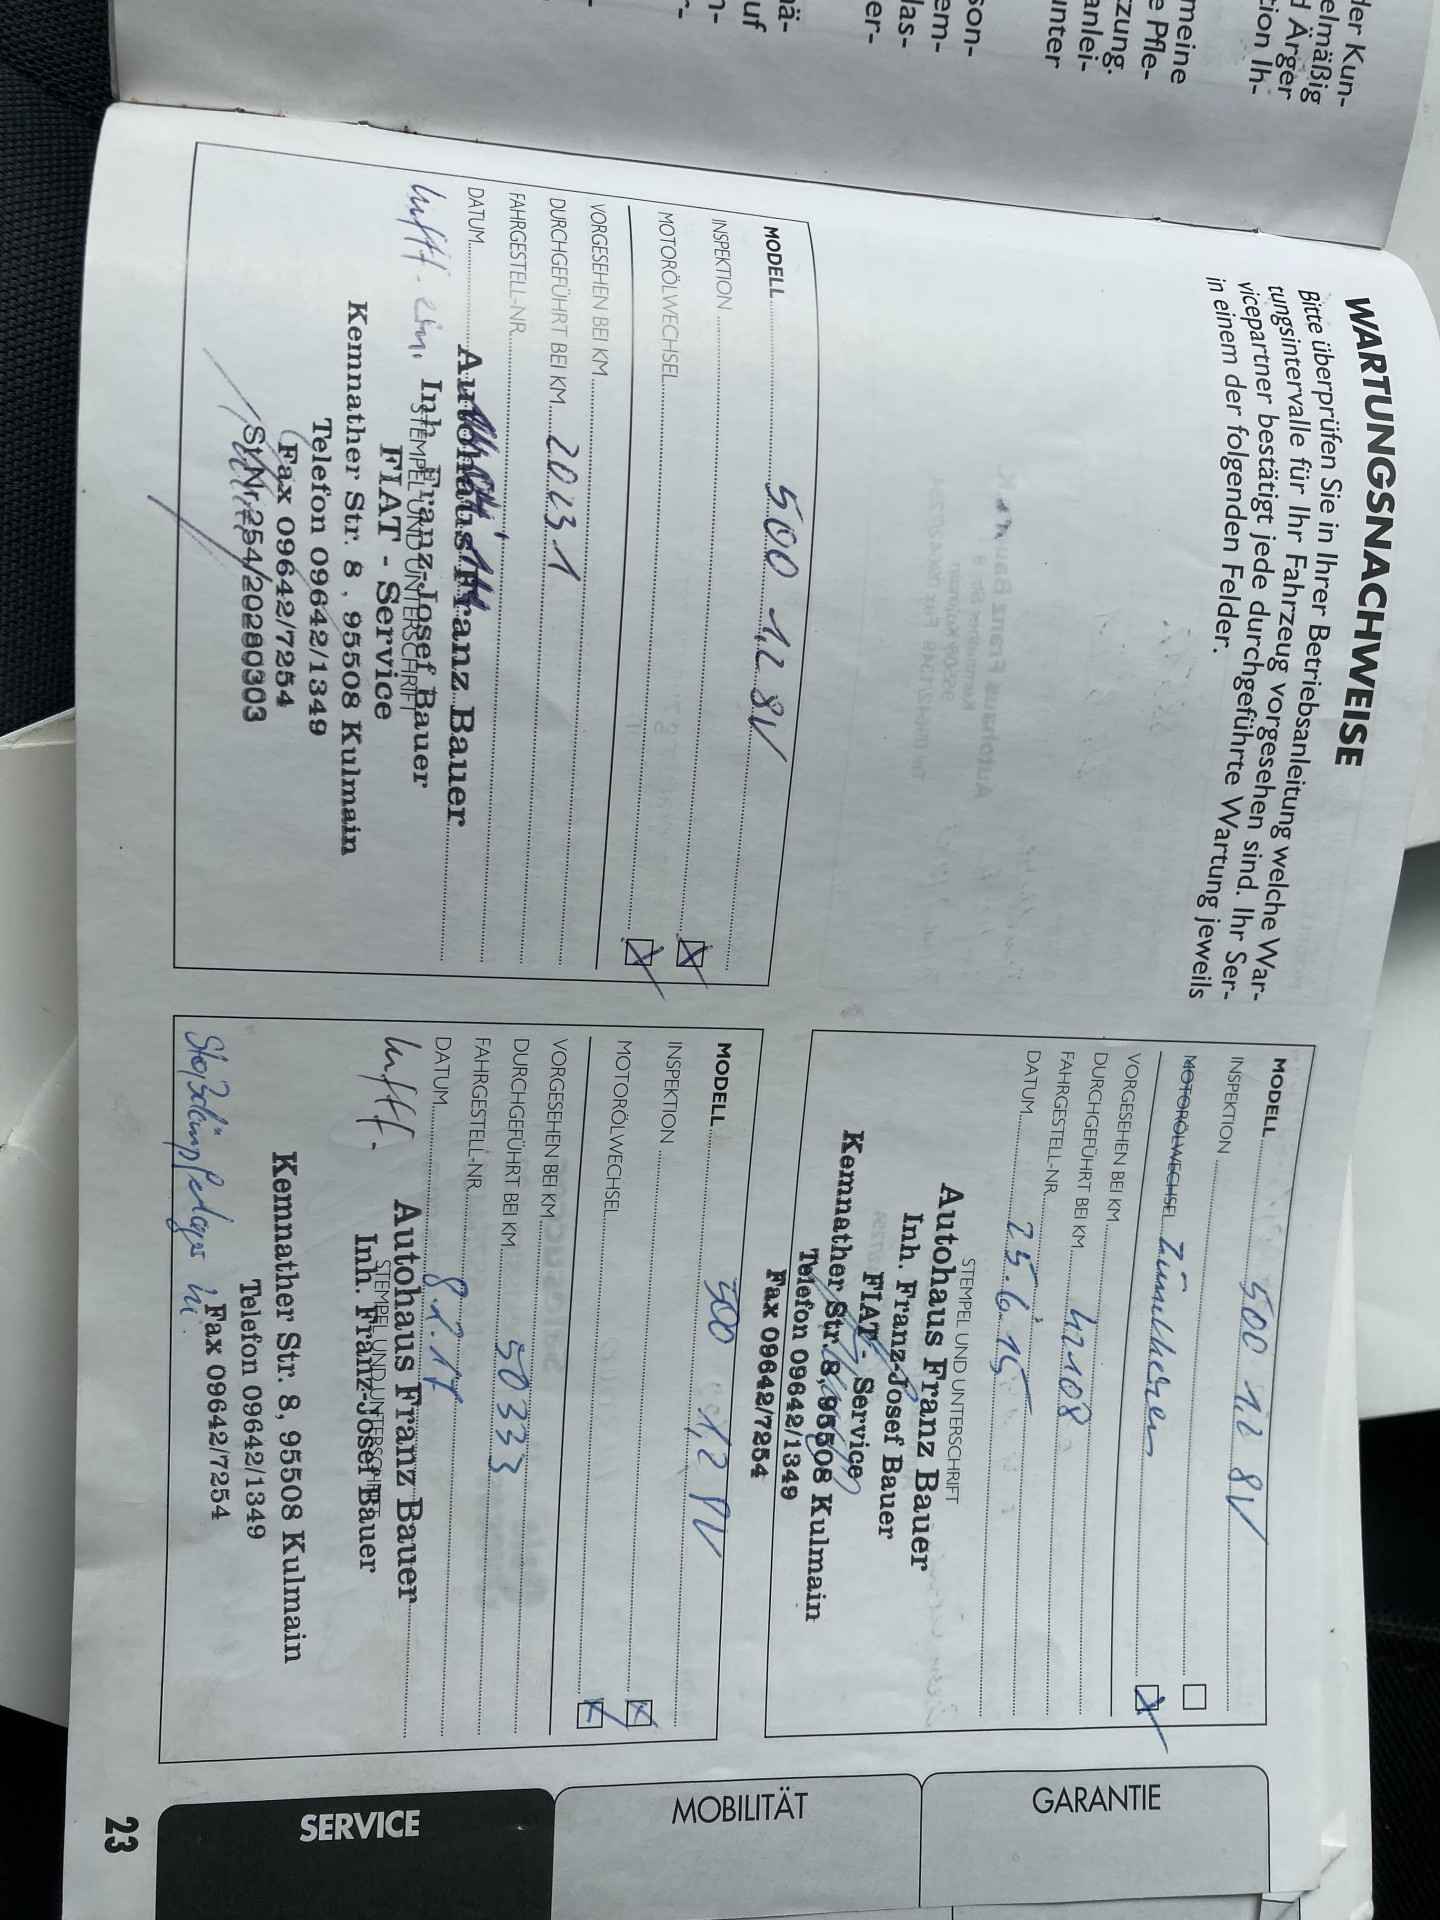 der Kun-
elmäßig
d Ärger
tion Ih-
meine
e Pfle-
zung.
anlei-
unter
son-
em-
las-
er-
ä-
uf
n-
r-
WARTUNGSNACHWEISE
Bitte überprüfen Sie in Ihrer Betriebsanleitung welche War-
tungsintervalle für Ihr Fahrzeug vorgesehen sind. Ihr Ser-
vicepartner bestätigt jede durchgeführte Wartung jeweils
in einem der folgenden Felder.
MODELL 500 1,2 8V
INSPEKTION
MOTORÖLWECHSEL
VORGESEHEN BEI KM
DURCHGEFÜHRT BEI KM 20231
FAHRGESTELL-NR.
DATUM
STEMPEL UND UNTERSCHRIFT
Autohaus Franz Bauer
Inh. Franz-Josef Bauer
FIAT - Service
Kemnather Str. 8, 95508 Kulmain
Telefon 09642/1349
Fax 09642/7254
St.Nr.254/20280303
MODELL 500 1.2 8V
INSPEKTION
MOTORÖLWECHSEL Zündkerzen
VORGESEHEN BEI KM
DURCHGEFÜHRT BEI KM 42108
FAHRGESTELL-NR.
DATUM 25.6.15
STEMPEL UND UNTERSCHRIFT
Autohaus Franz Bauer
Inh. Franz-Josef Bauer
FIAT - Service
Kemnather Str. 8, 95508 Kulmain
Telefon 09642/1349
Fax 09642/7254
MODELL 500 1,2 8V
INSPEKTION
MOTORÖLWECHSEL
VORGESEHEN BEI KM
DURCHGEFÜHRT BEI KM 50333
FAHRGESTELL-NR.
DATUM 8.2.17
Luftf.
STEMPEL UND UNTERSCHRIFT
Autohaus Franz Bauer
Inh. Franz-Josef Bauer
Kemnather Str. 8, 95508 Kulmain
Telefon 09642/1349
Fax 09642/7254
Stoßdämpferlager
GARANTIE
MOBILITÄT
SERVICE
23